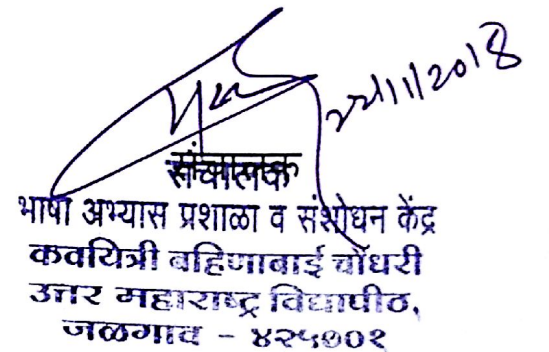 22/11/2018
संचालक
भाषा अभ्यास प्रशाळा व संशोधन केंद्र
कवयित्री बहिणाबाई चौधरी
उत्तर महाराष्ट्र विद्यापीठ,
जळगाव - ४२५००१